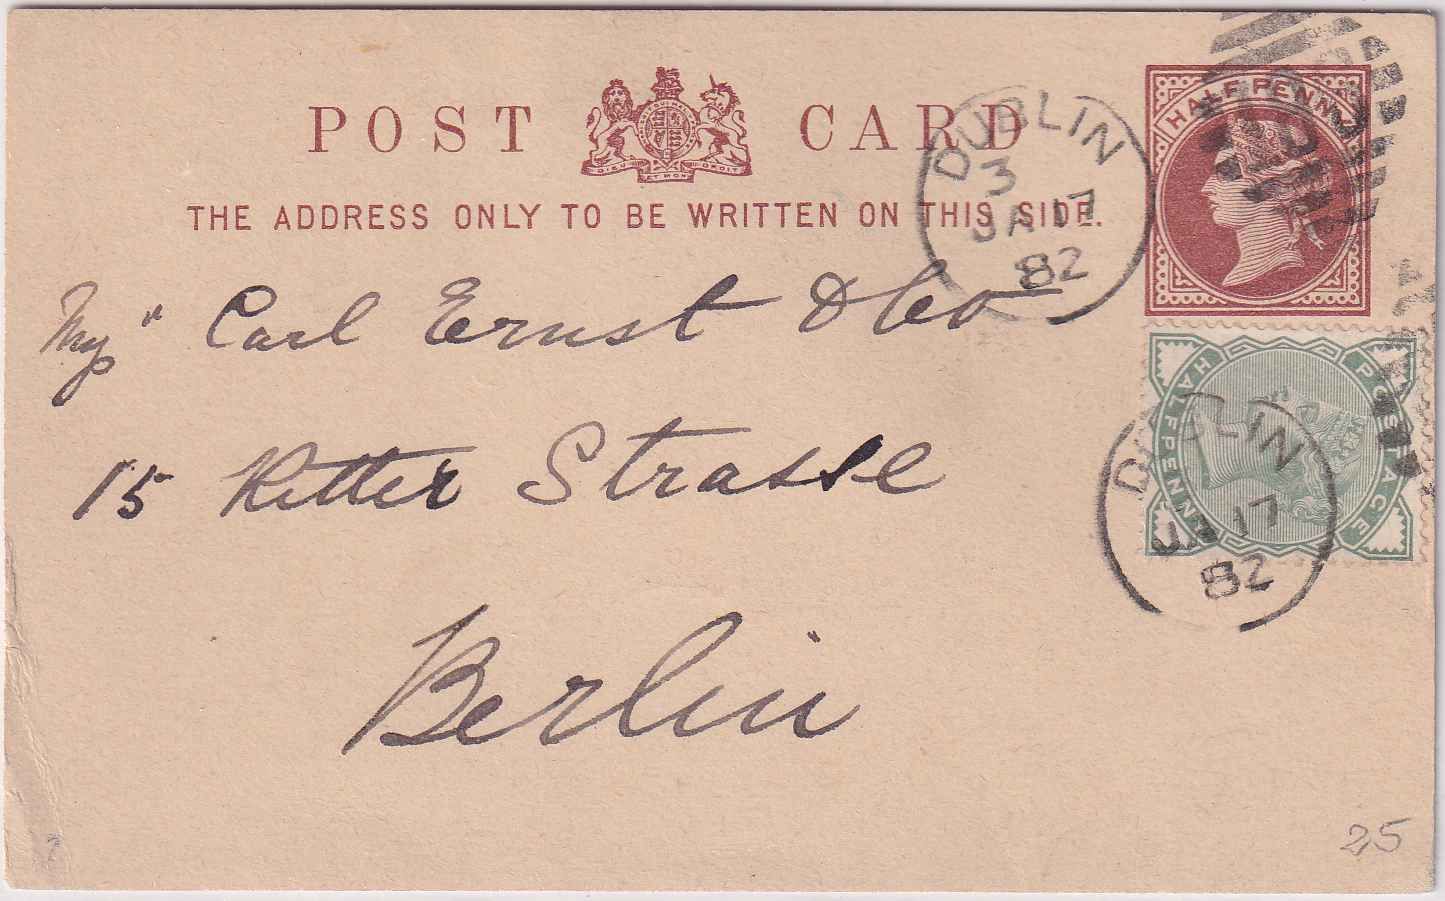 POST CARD
DIEU ET MON DROIT
THE ADDRESS ONLY TO BE WRITTEN ON THIS SIDE.
HALF PENNY
DUBLIN
3
JA 17
82
Carl Ernst & Co
15 Ritter Strasse
Berlin
POSTAGE
HALFPENNY
DUBLIN
JA 17
82
25